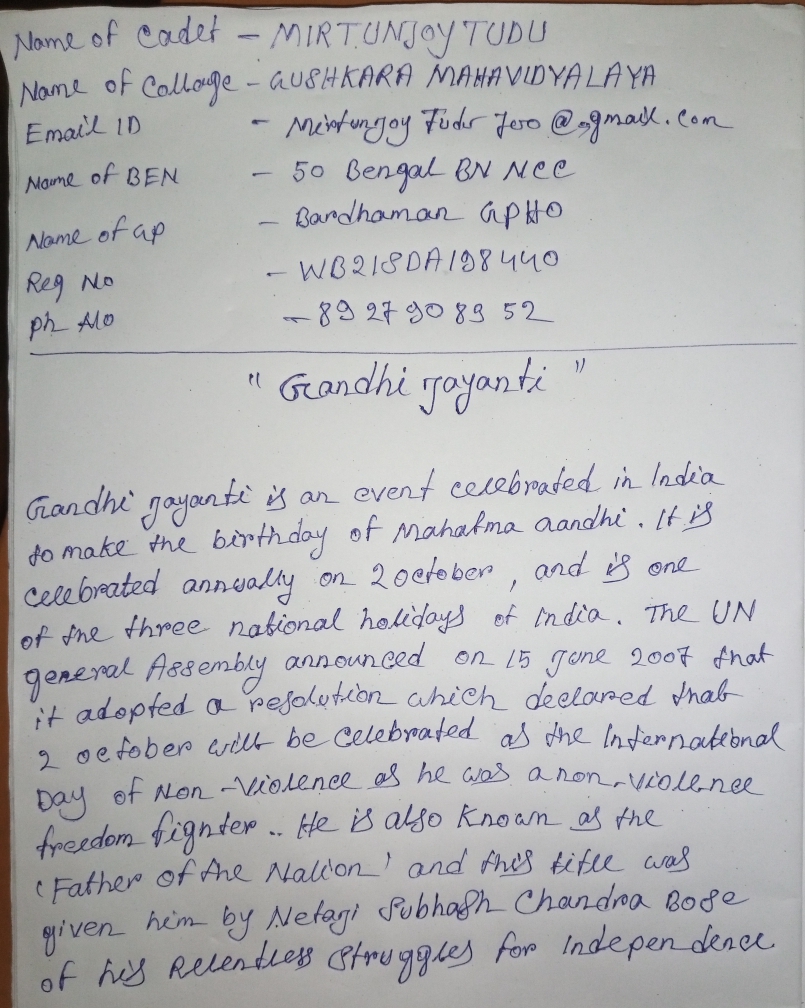 Name of Cadet - MIRTUNJOY TUDU
Name of Collage - GUSHKARA MAHAVIDYALAYA
Email ID - Mirtunjoy Tudu Jero @ gmail. Com
Name of BEN - 50 Bengal BN NCC
Name of GP - Bardhaman GPHQ
Reg No - WB21SDA198440
Ph No - 89 27 908 9 52
" Gandhi Jayanti "
Gandhi Jayanti is an event celebrated in India
to make the birthday of Mahatma Gandhi. It is
celebrated annually on 2 october, and is one
of the three national holidays of India. The UN
general Assembly announced on 15 June 2007 that
it adopted a resolution which declared that
2 october will be celebrated as the International
Day of Non-Violence as he was a non-violence
freedom fighter.. He is also Known as the
'Father of the Nation' and this title was
given him by Netagi Subhash Chandra Bose
of his Relentless Struggles for Independence